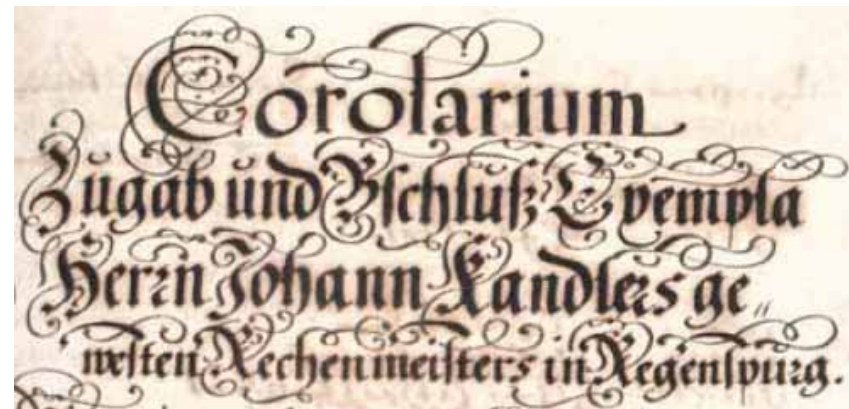 Corolarium
Zŭgab ŭnd Bschlŭß Exempla
Herrn Johann Kandlers ge„
westen Rechenmeisters in Regenspurg.